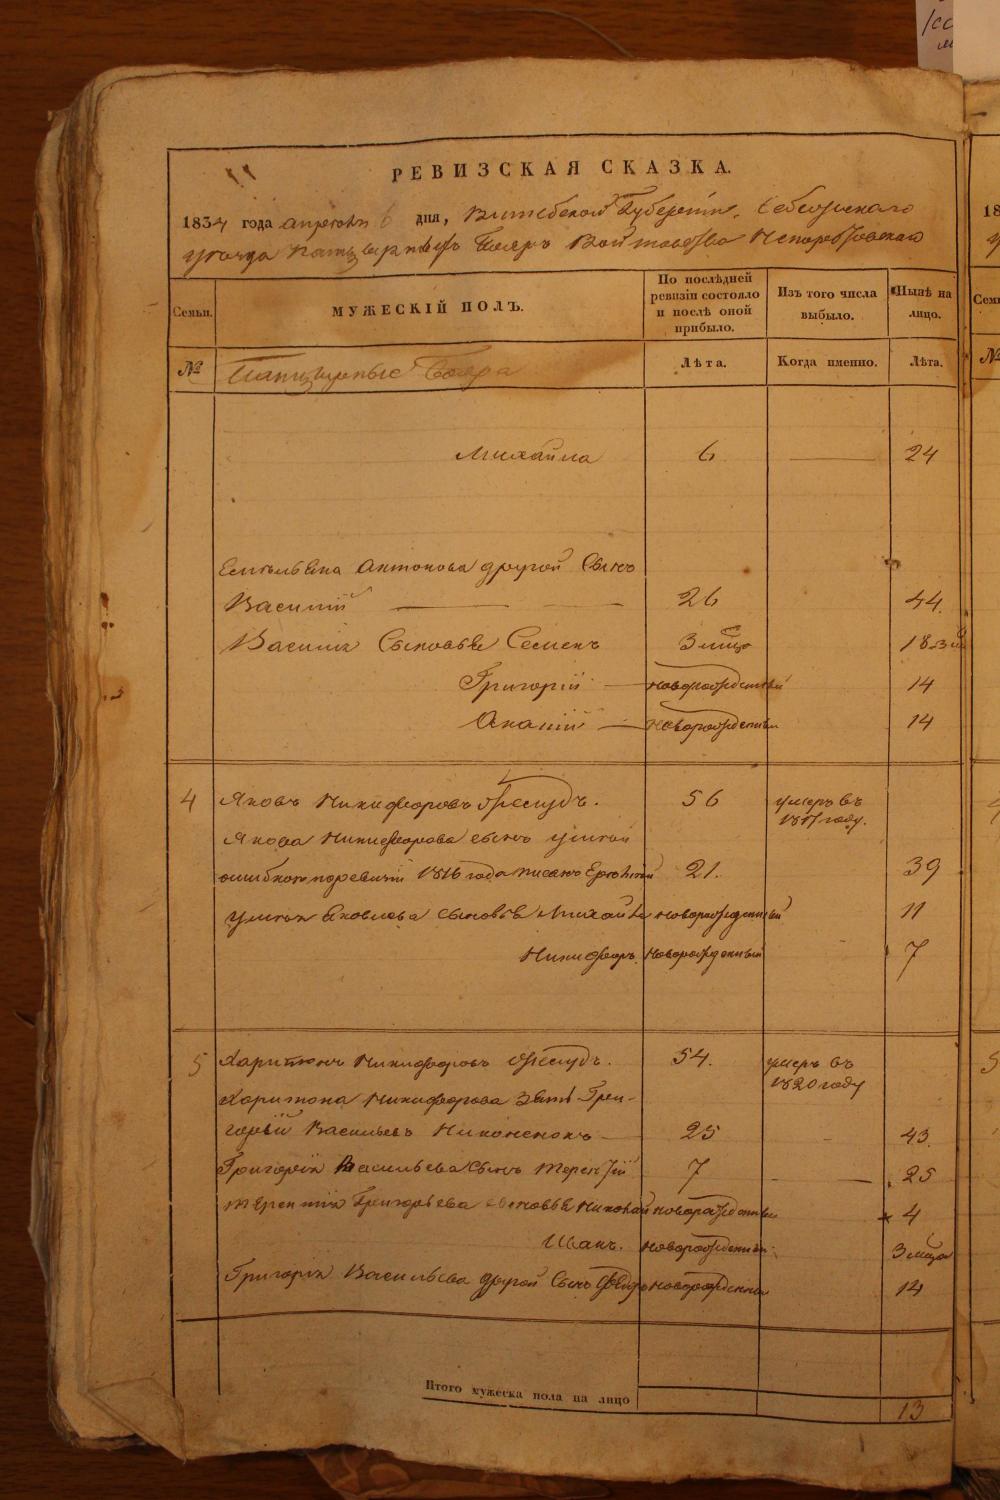 11
РЕВИЗСКАЯ СКАЗКА.
1834 года апреля 6 дня, Витебской Губернии, Себежскаго
уезда Панцырныхъ Бояръ Войтовства Непоротовскаго
Семьи.
МУЖЕСКІЙ ПОЛЪ.
По послѣдней ревизіи состояло и послѣ оной прибыло.
Изъ того числа выбыло.
Нынѣ на лицо.
№
Панцырные Бояра
Лѣта.
Когда именно.
Лѣта.
Михайла 6 24
Емельяна Антонова другой Сынъ
Василій 26 44.
Василія Сыновья Семенъ 3 мѣсц 18
Григорій новорожденный 14
Ананій Новорожденны 14
4 Яковъ Никифоровъ 56 умеръ въ 1817 году.
Якова Никифорова сынъ
ошибкою по ревизіи 1816 года писанъ 21. 39
Яковлева сыновья Михайла новорожденный 11
Никифоръ. Новорожденный 7
5 Харитонъ Никифоровъ 54. умеръ въ 1820 году
Харитона Никифорова Зять Гри-
горій Васильевъ Никоненокъ 25 43.
Григорія Васильева Сынъ Терентій 7 25
Терентія Григорьева сыновья Николай новорожденны 4
Иванъ. новорожденны 3 мѣсца
Григорія Васильева другой Сынъ новорожденны 14
Итого мужеска пола на лицо 13